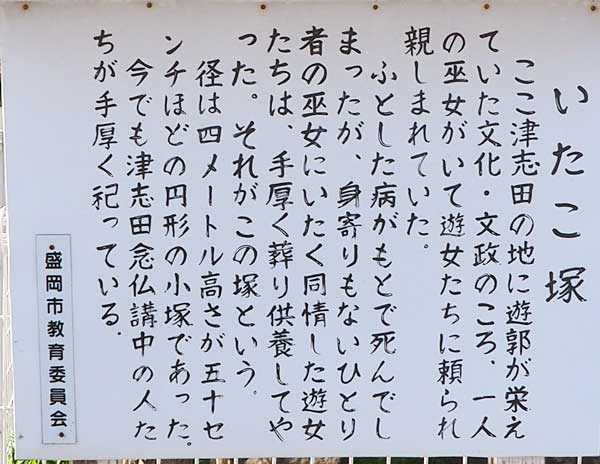 いたこ塚
ここ津志田の地に遊郭が栄え
ていた文化・文政のころ、一人
の巫女がいて遊女たちに頼られ
親しまれていた。
ふとした病がもとで死んでし
まったが、身寄りもないひとり
者の巫女にいたく同情した遊女
たちは、手厚く葬り供養してや
った。それがこの塚という。
径は四メートル高さが五十セ
ンチほどの円形の小塚であった。
今でも津志田念仏講中の人た
ちが手厚く祀っている.
盛岡市教育委員会